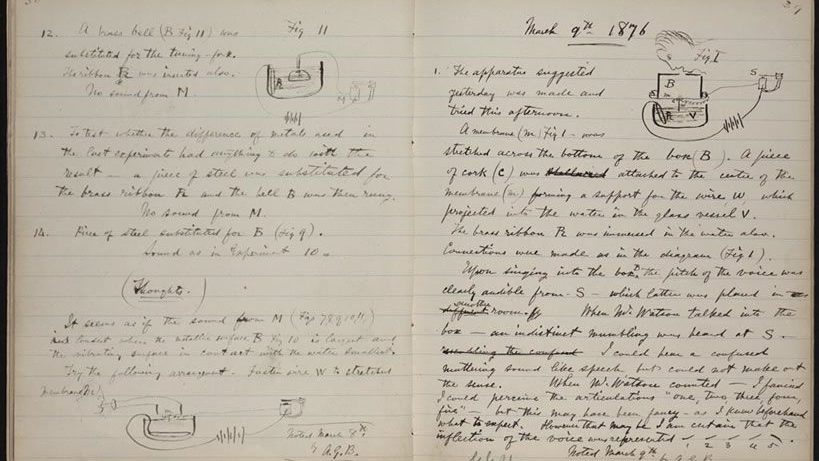 12. A brass bell (B Fig 11) was
substituted for the tuning-fork.
The ribbon R was inserted also.
No sound from M.
Fig 11
R
M
13. To test whether the difference of metals used in
the last experiments had anything to do with the
result — a piece of steel was substituted for
the brass ribbon R and the bell B was then rung.
No sound from M.
14. Piece of steel substituted for B (Fig 9).
Sound as in Experiment 10.
(Thoughts.)
It seems as if the sound from M (Figs 7 8 9 10, 11)
is loudest when the metallic surface B Fig 10 is largest and
the vibrating surface in contact with the water smallest.
Try the following arrangement. Fasten wire W to stretched
membrane
Noted March 8th
by A.G.B.
39
March 9th 1876
1. The apparatus suggested
yesterday was made and
tried this afternoon.
Fig 1
B
S
V
A membrane (m) Fig 1 — was
stretched across the bottom of the box (B). A piece
of cork (c) was attached to the centre of the
membrane (m) forming a support for the wire W, which
projected into the water in the glass vessel V.
The brass ribbon R was immersed in the water also.
Connections were made as in the diagram (Fig 1).
Upon singing into the box the pitch of the voice was
clearly audible from S — which latter was placed in
different another room. When Mr. Watson talked into the
box — an indistinct mumbling was heard at S.
resembling the confused I could hear a confused
muttering sound like speech but could not make out
the sense. When Mr. Watson counted — I fancied
I could perceive the articulations "one, two, three, four,
five" — but this may have been fancy — as I knew beforehand
what to expect. However that may be I am certain that the
inflection of the voice was represented 1 2 3 4 5.
Noted March 9th
by A.G.B.